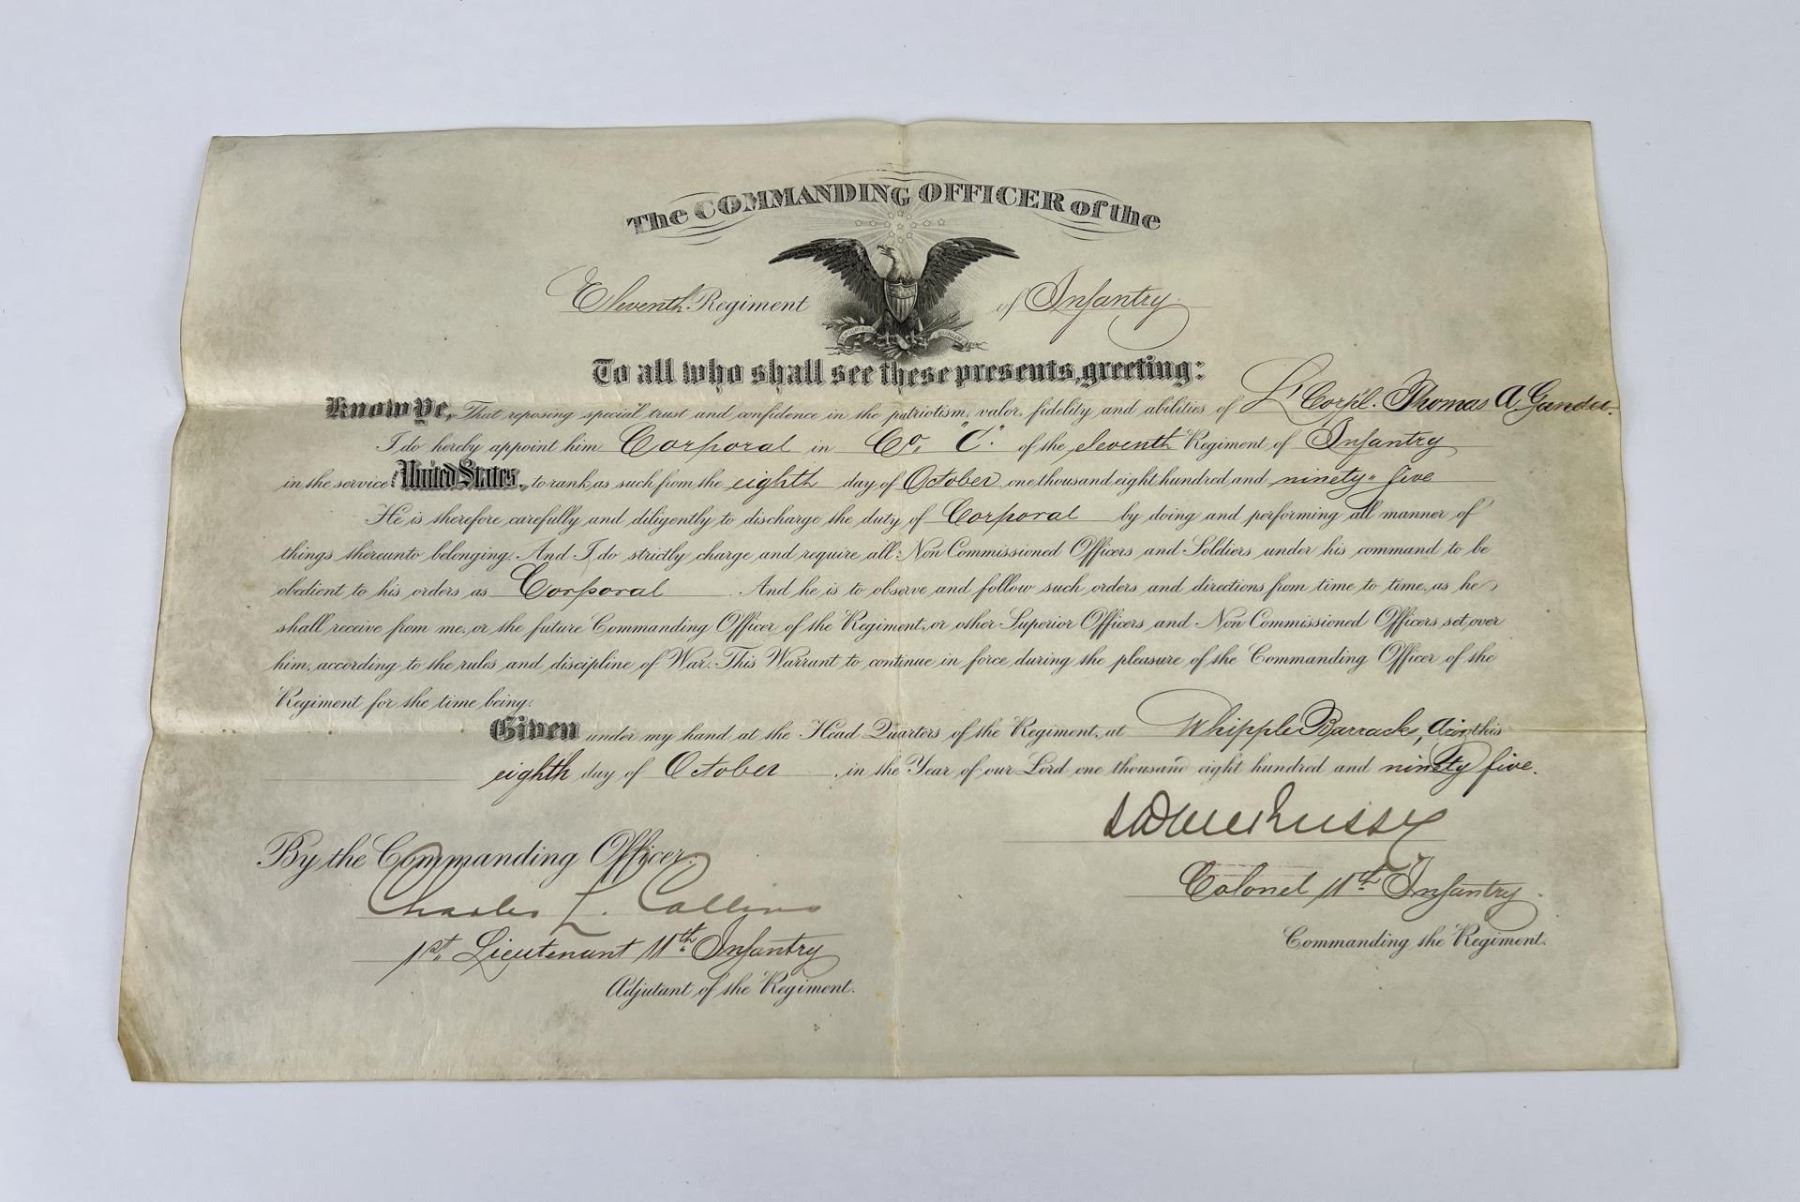 The COMMANDING OFFICER of the
Eleventh Regiment of Infantry.
To all who shall see these presents, greeting:
Know Ye, That reposing special trust and confidence in the patriotism, valor, fidelity and abilities of L Corpl. Thomas A.
I do hereby appoint him Corporal in Co. "C." of the Eleventh Regiment of Infantry
in the service United States, to rank as such from the eighth day of October one thousand eight hundred and ninety-five
He is therefore carefully and diligently to discharge the duty of Corporal by doing and performing all manner of
things thereunto belonging. And I do strictly charge and require all Non Commissioned Officers and Soldiers under his command to be
obedient to his orders as Corporal And he is to observe and follow such orders and directions from time to time, as he
shall receive from me, or the future Commanding Officer of the Regiment, or other Superior Officers and Non Commissioned Officers set over
him, according to the rules and discipline of War. This Warrant to continue in force during the pleasure of the Commanding Officer of the
Regiment for the time being.
Given under my hand at the Head Quarters of the Regiment, at Whipple Barracks, this
eighth day of October in the Year of our Lord one thousand eight hundred and ninety five.
By the Commanding Officer:
Charles L. Collins
Colonel 11th Infantry.
1st. Lieutenant 11th Infantry
Commanding the Regiment.
Adjutant of the Regiment.